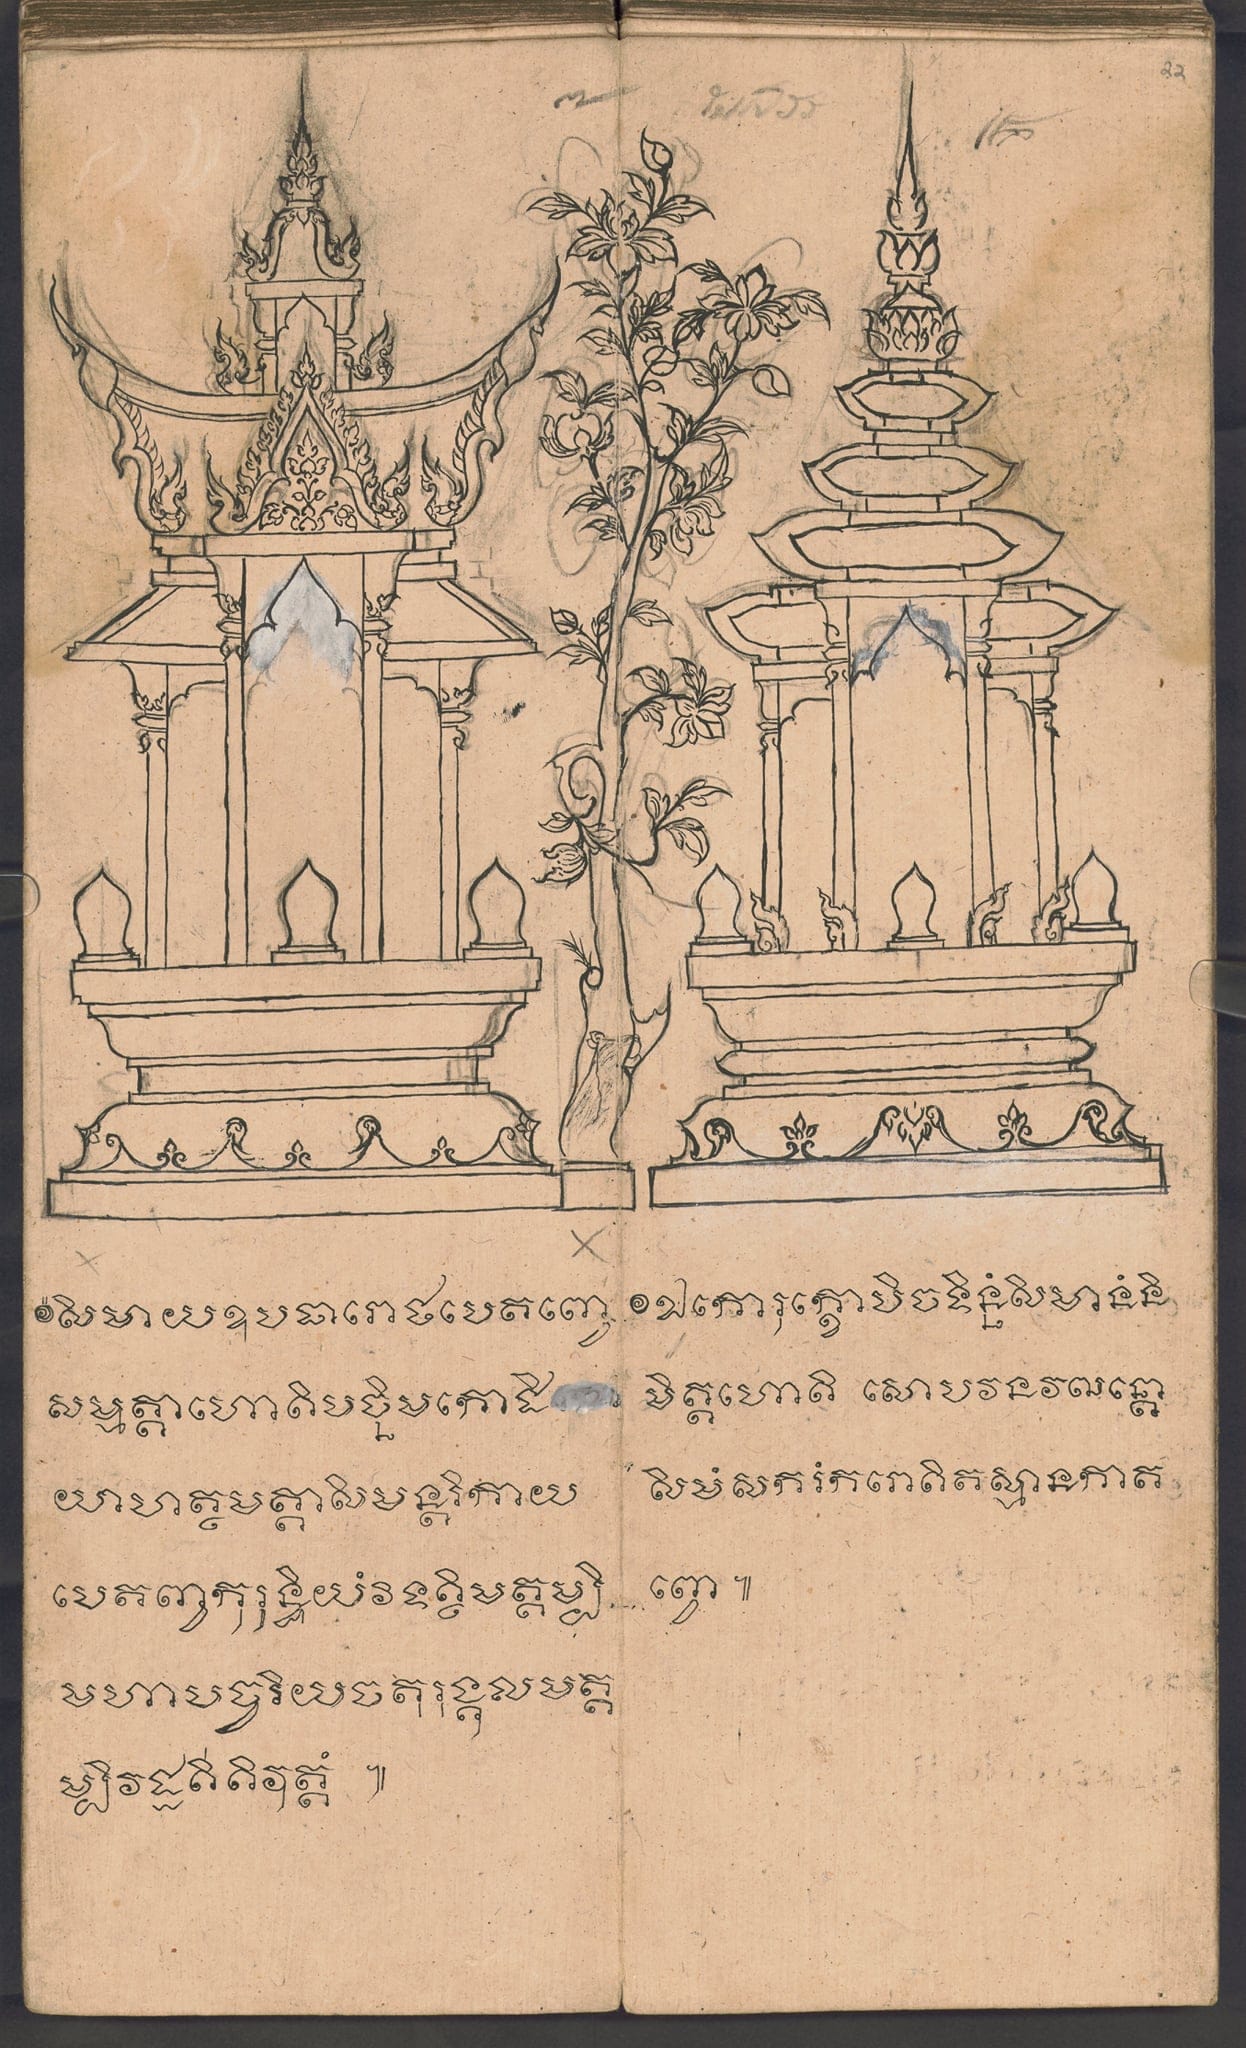 ៙សិមាយឧបចារោឋបេតព្វោ
សម្មត្តាហោតិបច្ឆិមកោដិ
យាហត្ថមត្តាសិមន្តរិកាឋ
បេតព្វាកុរុន្ទិយំវទត្ថិមត្តម្បិ
មហាបច្ចរិយចតុរង្គុលមត្ត
ម្បិវដ្ដតីតិវុត្តំ ៕
៙ឯកោរុក្ខោបិចទិន្នំសិមានំនិ
មិត្តហោតិ សោបនវឍន្តោ
សិមំសករំករោតិតស្មានកាត
ព្វោ ៕